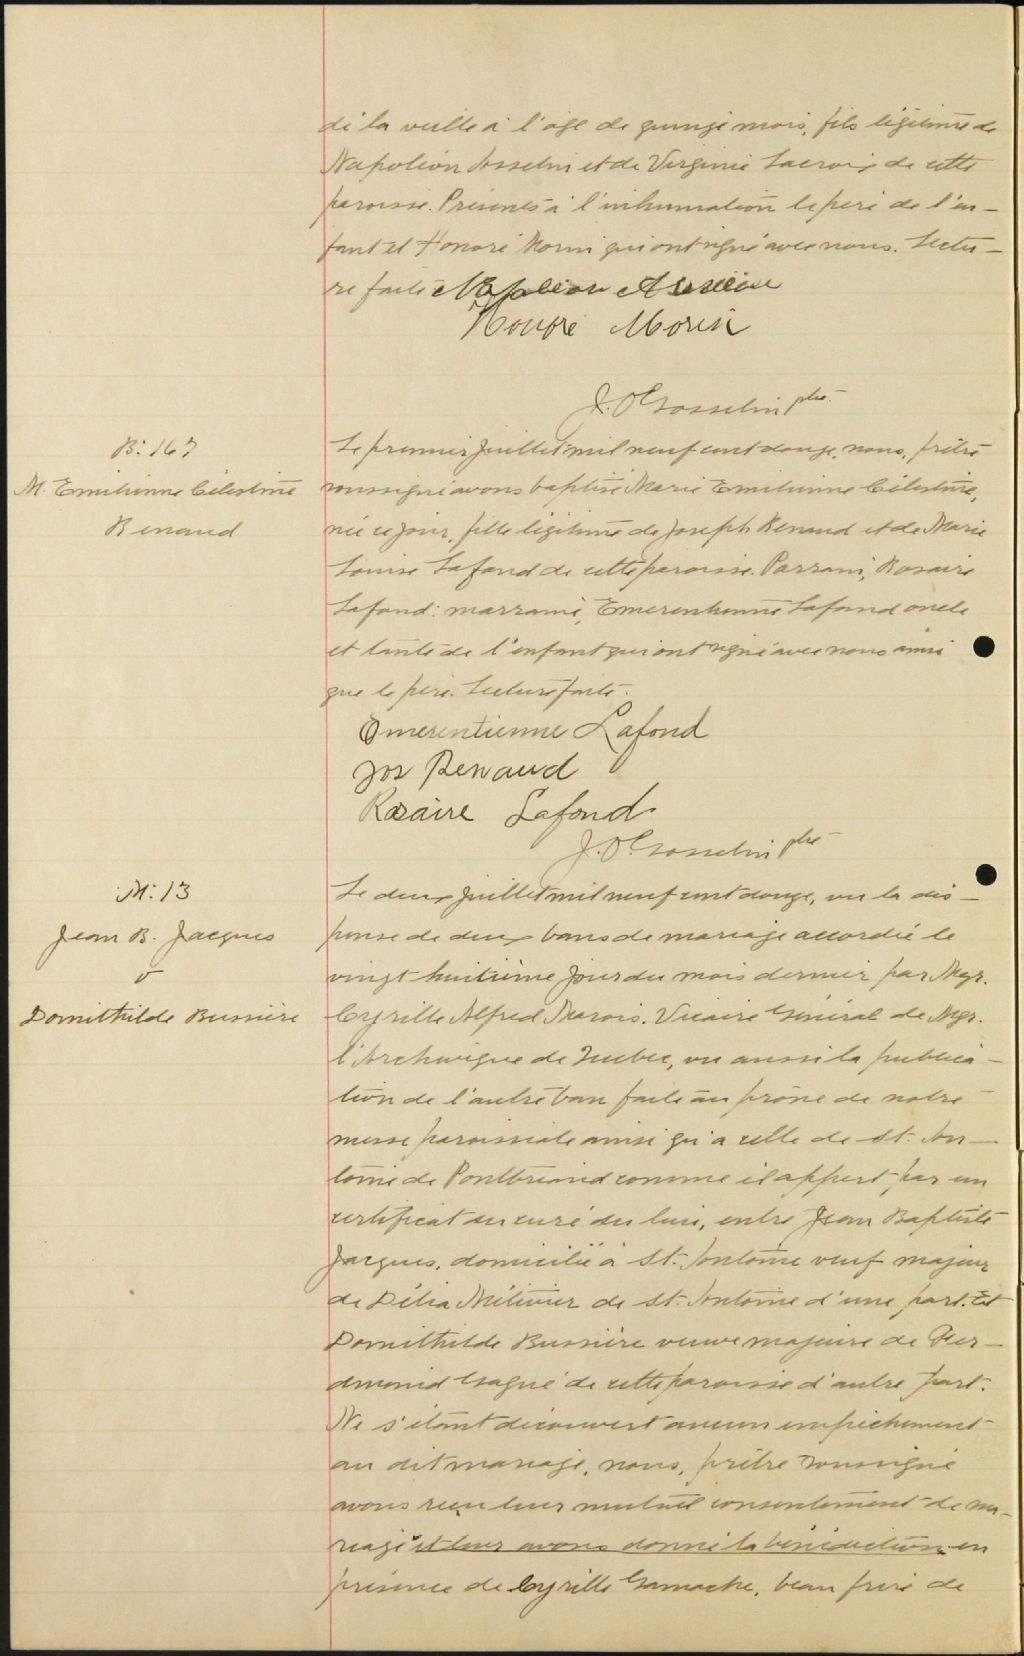 dé la veille à l'âge de quinze mois, fils légitime de
Napoléon Asselin et de Virginie Lacroix de cette
paroisse. Présents à l'inhumation le père de l'en-
fant et Honoré Morin qui ont signé avec nous. Lectu-
re faite Napoléon Asselin
Honoré Morin
J. O. Gosselin ptre.
B: 167
M. Emilienne Célestine
Renaud
Le premier juillet mil neuf cent douze, nous, prêtre
soussigné avons baptisé Marie Emilienne Célestine,
née ce jour, fille légitime de Joseph Renaud et de Marie
Louise Lafond de cette paroisse. Parrain, Rosaire
Lafond: marraine, Emerentienne Lafond oncle
et tante de l'enfant qui ont signé avec nous ainsi
que le père. Lecture faite.
Emerentienne Lafond
Jos Renaud
Rosaire Lafond
J. O. Gosselin ptre
M: 13
Jean B. Jacques
&
Domithilde Bussière
Le deux juillet mil neuf cent douze, vu la dis-
pense de deux bans de mariage accordée le
vingt huitième jour du mois dernier par Mgr.
Cyrille Alfred Marois, Vicaire Général de Mgr.
l'Archevêque de Québec, vu aussi la publica-
tion de l'autre ban faite au prône de notre
messe paroissiale ainsi qu'a celle de St. An-
toine de Pontbriand comme il appert par un
certificat du curé du lieu, entre Jean Baptiste
Jacques, domicilié à St. Antoine veuf majeur
de Délia Métivier de St. Antoine d'une part. Et
Domithilde Bussière veuve majeure de Fer-
dmond Gagné de cette paroisse d'autre part.
Ne s'étant découvert aucun empêchement
au dit mariage, nous, prêtre soussigné
avons reçu leur mutuel consentement de ma-
riage et leur avons donné la bénédiction en
présence de Cyrille Gamache, beau frère de